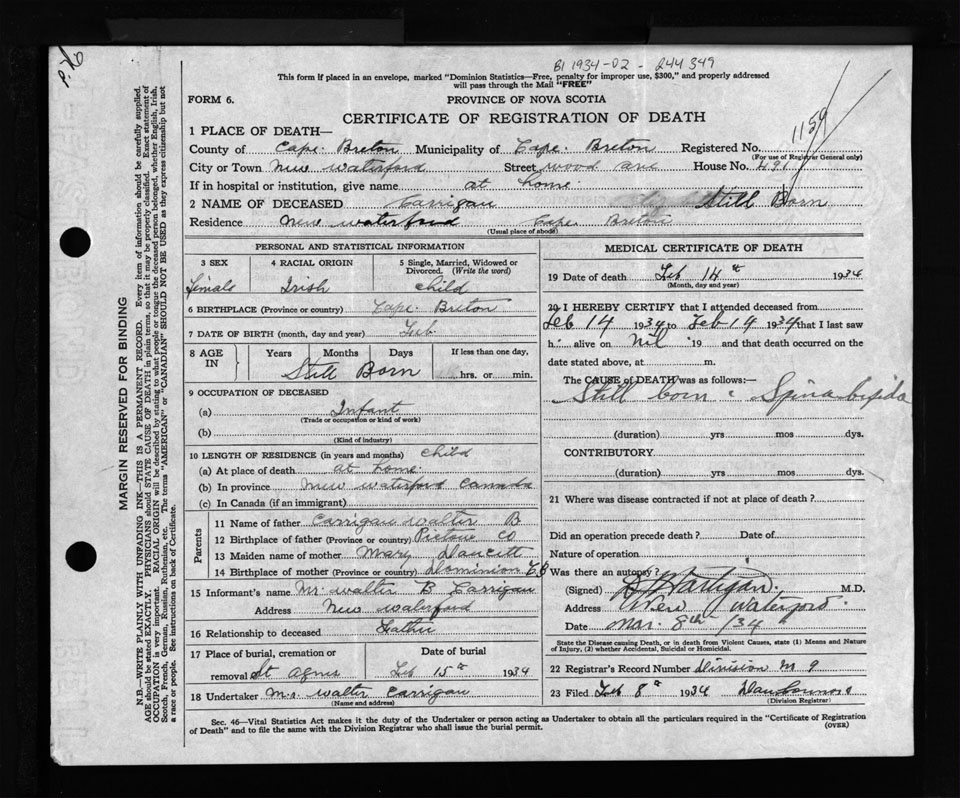 P.26
B1 1934-02 - 244349
This form if placed in an envelope, marked "Dominion Statistics—Free, penalty for improper use, $300," and properly addressed
will pass through the Mail "FREE"
FORM 6.
PROVINCE OF NOVA SCOTIA
CERTIFICATE OF REGISTRATION OF DEATH
1159
1 PLACE OF DEATH—
County of Cape Breton Municipality of Cape Breton Registered No.
(For use of Registrar General only)
City or Town New Waterford Street wood ave House No. 431
If in hospital or institution, give name at home
2 NAME OF DECEASED Carrigan Still Born
Residence New waterford Cape Breton
(Usual place of abode)
PERSONAL AND STATISTICAL INFORMATION
3 SEX 4 RACIAL ORIGIN 5 Single, Married, Widowed or
Divorced. (Write the word)
Female Irish Child
6 BIRTHPLACE (Province or country) Cape Breton
7 DATE OF BIRTH (month, day and year) Feb
8 AGE IN Years Months Days If less than one day,
Still Born hrs. or min.
9 OCCUPATION OF DECEASED
(a) Infant
(Trade or occupation or kind of work)
(b)
(Kind of industry)
10 LENGTH OF RESIDENCE (in years and months) Child
(a) At place of death at home
(b) In province New waterford Canada
(c) In Canada (if an immigrant)
Parents
11 Name of father Carrigan walter B
12 Birthplace of father (Province or country) Pictou Co
13 Maiden name of mother Mary
14 Birthplace of mother (Province or country) Dominion CB
15 Informant's name Mr walter B Carrigan
Address New waterford
16 Relationship to deceased Father
17 Place of burial, cremation or Date of burial
removal St Agnes Feb 15th 1934
18 Undertaker Mr walter Carrigan
(Name and address)
MEDICAL CERTIFICATE OF DEATH
19 Date of death Feb 14th 1934
(Month, day and year)
20 I HEREBY CERTIFY that I attended deceased from
Feb 14 1934 to Feb 14 1934 that I last saw
h alive on Nil 19 and that death occurred on the
date stated above, at m.
The CAUSE of DEATH was as follows:—
Still born Spina bifida
(duration) yrs mos dys.
CONTRIBUTORY
(duration) yrs mos dys.
21 Where was disease contracted if not at place of death?
Did an operation precede death? Date of
Nature of operation
Was there an autopsy?
(Signed) Hartigan, M.D.
Address New Waterford
Date Mar. 8th /34
State the Disease causing Death, or in death from Violent Causes, state (1) Means and Nature
of Injury, (2) whether Accidental, Suicidal or Homicidal.
22 Registrar's Record Number Division M 9
23 Filed Feb 8th 1934
(Division Registrar)
Sec. 46—Vital Statistics Act makes it the duty of the Undertaker or person acting as Undertaker to obtain all the particulars required in the "Certificate of Registration
of Death" and to file the same with the Division Registrar who shall issue the burial permit.
(OVER)
MARGIN RESERVED FOR BINDING
N.B.—WRITE PLAINLY WITH UNFADING INK—THIS IS A PERMANENT RECORD. Every item of information should be carefully supplied.
AGE should be stated EXACTLY. PHYSICIANS should STATE CAUSE OF DEATH in plain terms, so that it may be properly classified. Exact statement of
OCCUPATION is very important. RACIAL ORIGIN will be described by stating to what people or tongue the deceased person belonged, whether English, Irish,
Scotch, French, German, Russian, Ruthenian, etc. The terms "AMERICAN" or "CANADIAN" SHOULD NOT BE USED as they express citizenship but not
a race or people. See instructions on back of Certificate.